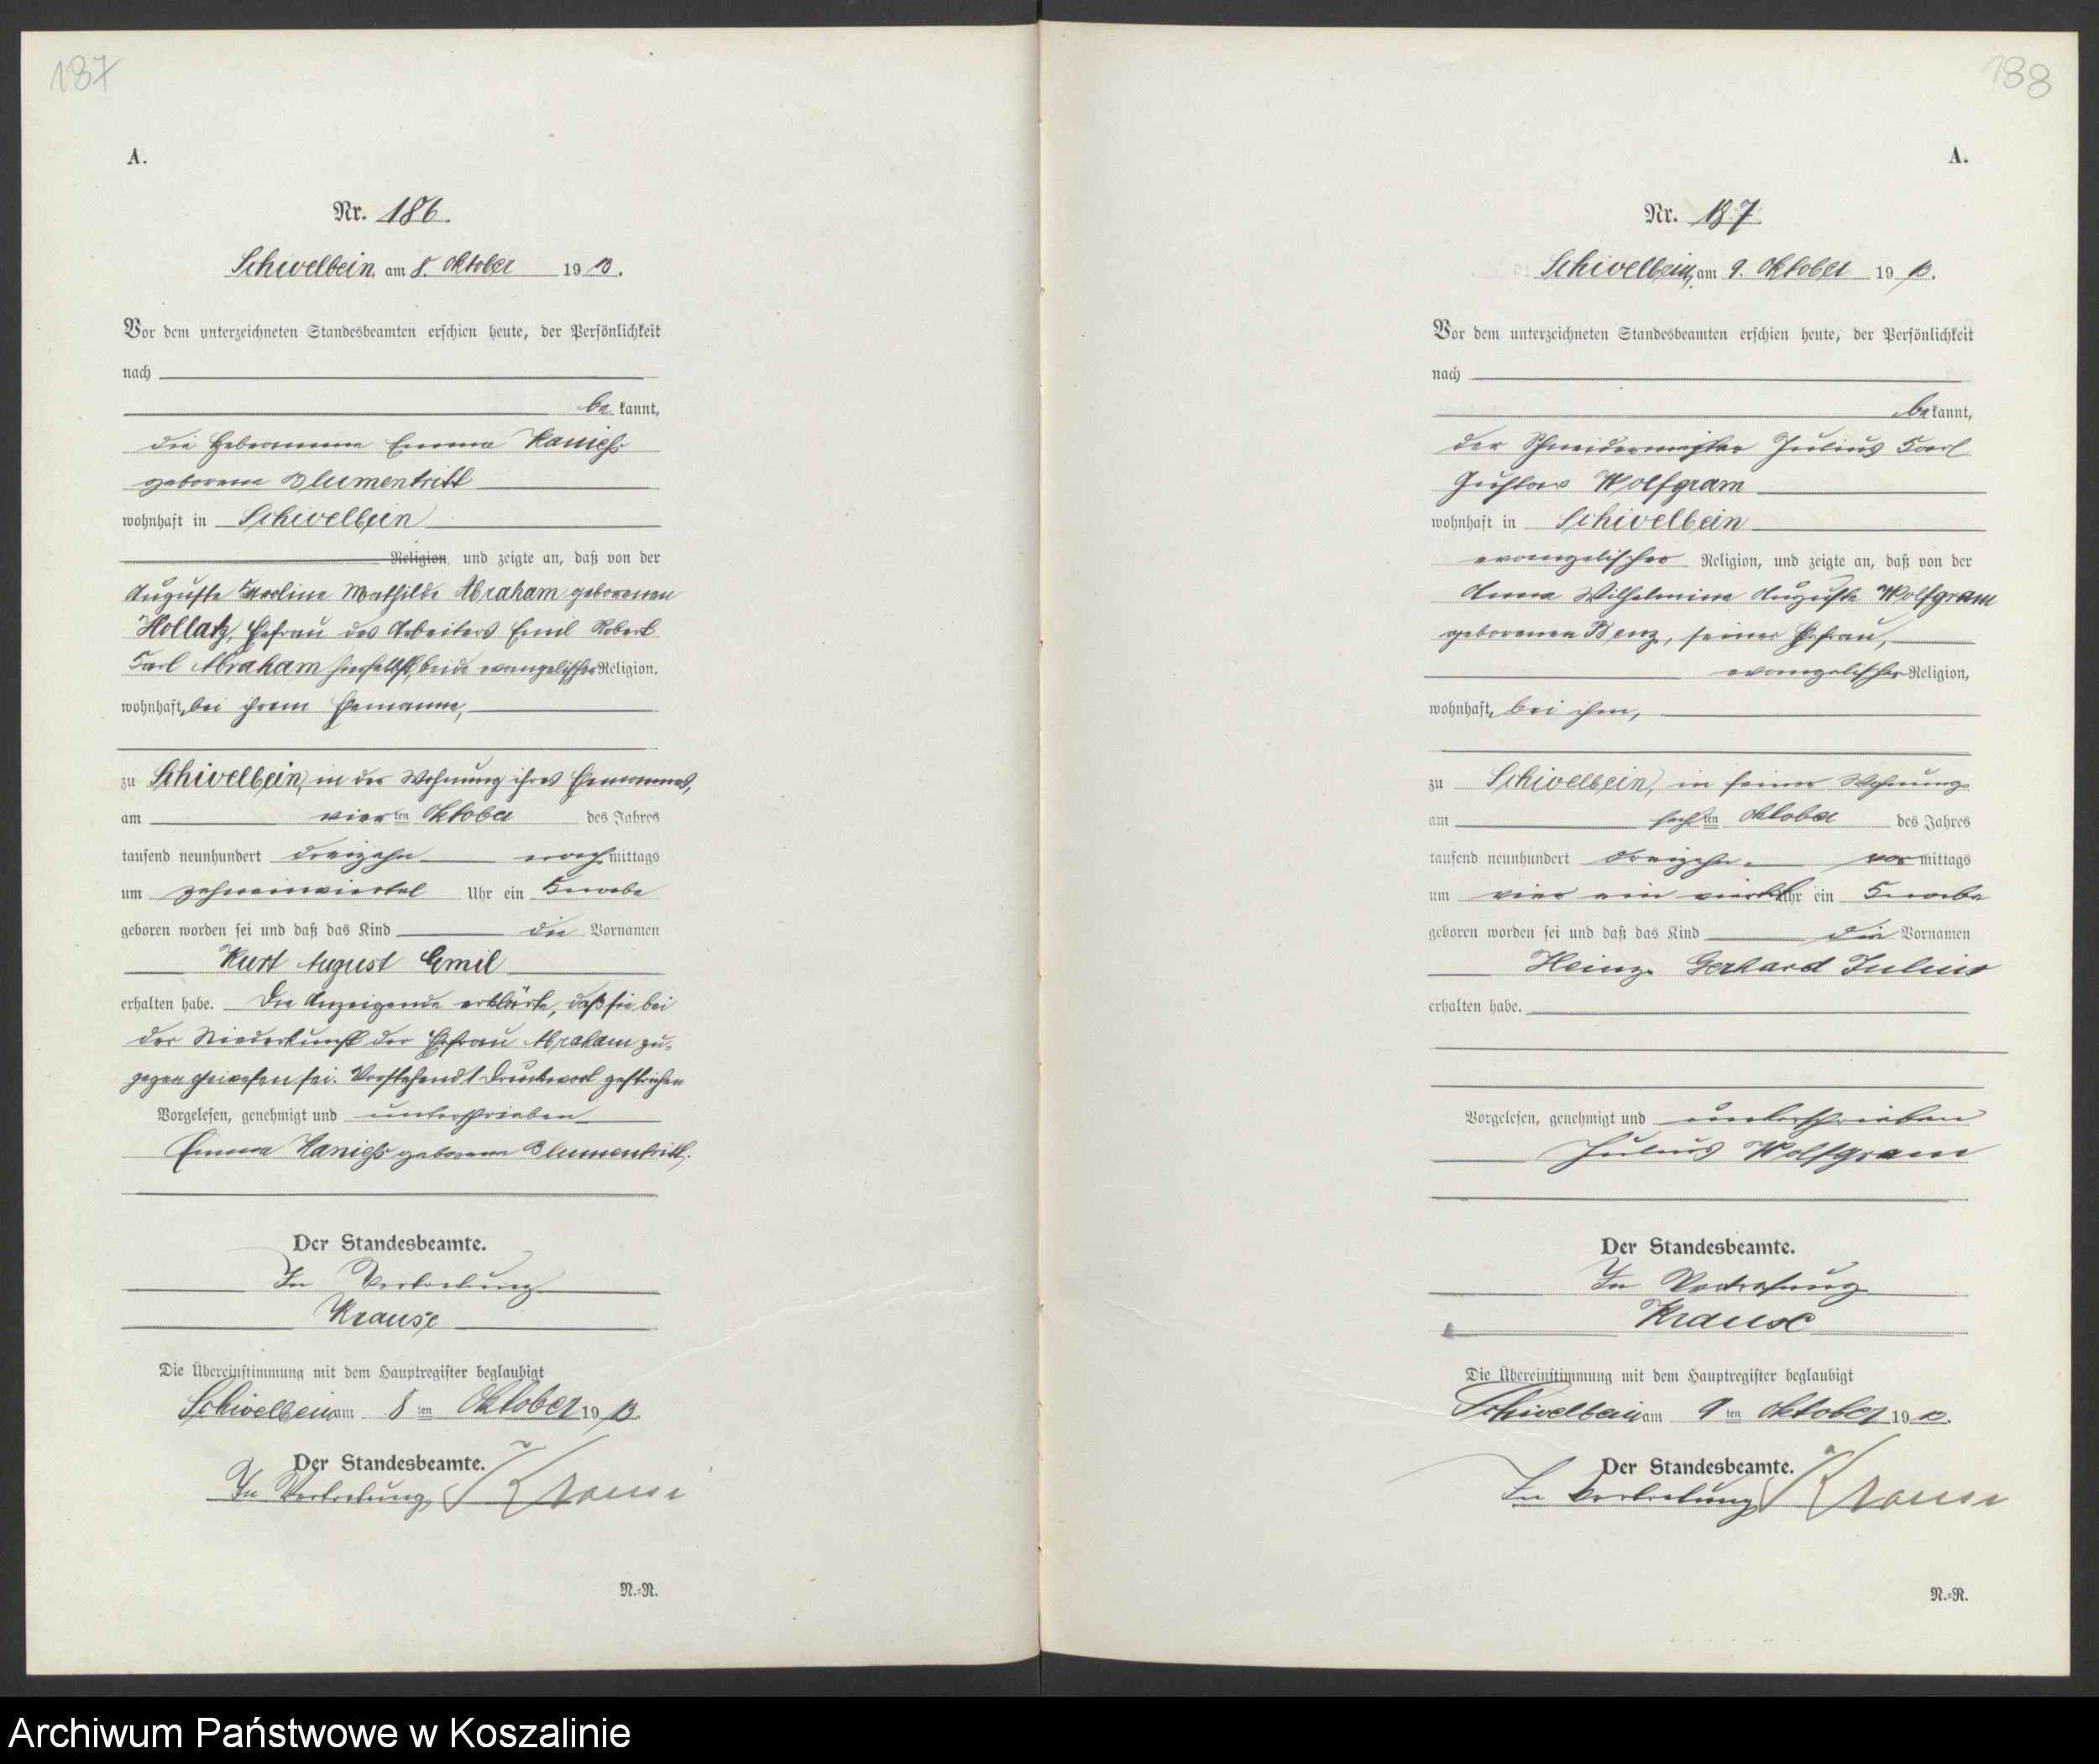 187
A.
Nr. 186.
Schivelbein, am 8. Oktober 1913.
Vor dem unterzeichneten Standesbeamten erschien heute, der Persönlichkeit
nach
be kannt,
die Hebeamme Emma
geborene Blumentritt
wohnhaft in Schivelbein
Religion, und zeigte an, daß von der
Auguste Karoline Mathilde Abraham geborenen
Hollatz, Ehefrau des Arbeiters Emil Robert
Karl Abraham hierselbst, beide evangelischer Religion,
wohnhaft, bei ihrem Ehemanne,
zu Schivelbein, in der Wohnung ihres Ehemannes,
am vierten Oktober des Jahres
tausend neunhundert dreizehn nachmittags
um zehneinviertel Uhr ein Knabe
geboren worden sei und daß das Kind die Vornamen
Kurt August Emil
erhalten habe. Die Anzeigende erklärte, daß sie bei
der Niederkunft der Ehefrau Abraham zu-
gegen gewesen sei. Vorstehend 1 Druckwort gestrichen
Vorgelesen, genehmigt und unterschrieben
Emma geborene Blumentritt.
Der Standesbeamte.
In Vertretung
Krause
Die Übereinstimmung mit dem Hauptregister beglaubigt
Schivelbein am 8ten Oktober 1913.
Der Standesbeamte.
In Vertretung Krause
N.-R.
188
A.
Nr. 187.
Schivelbein, am 9. Oktober 1913.
Vor dem unterzeichneten Standesbeamten erschien heute, der Persönlichkeit
nach
be kannt,
der Schneidermeister Julius Karl
Gustav Wolfgram
wohnhaft in Schivelbein
evangelischer Religion, und zeigte an, daß von der
Anna Wilhelmine Auguste Wolfgram
geborenen Benz, seiner Ehefrau,
evangelischer Religion,
wohnhaft, bei ihm,
zu Schivelbein, in seiner Wohnung
am sechsten Oktober des Jahres
tausend neunhundert dreizehn vormittags
um vier ein viertel Uhr ein Knabe
geboren worden sei und daß das Kind die Vornamen
Heinz Gerhard Julius
erhalten habe.
Vorgelesen, genehmigt und unterschrieben
Julius Wolfgram
Der Standesbeamte.
In Vertretung
Krause
Die Übereinstimmung mit dem Hauptregister beglaubigt
Schivelbein am 9ten Oktober 1913.
Der Standesbeamte.
In Vertretung Krause
N.-R.
Archiwum Państwowe w Koszalinie